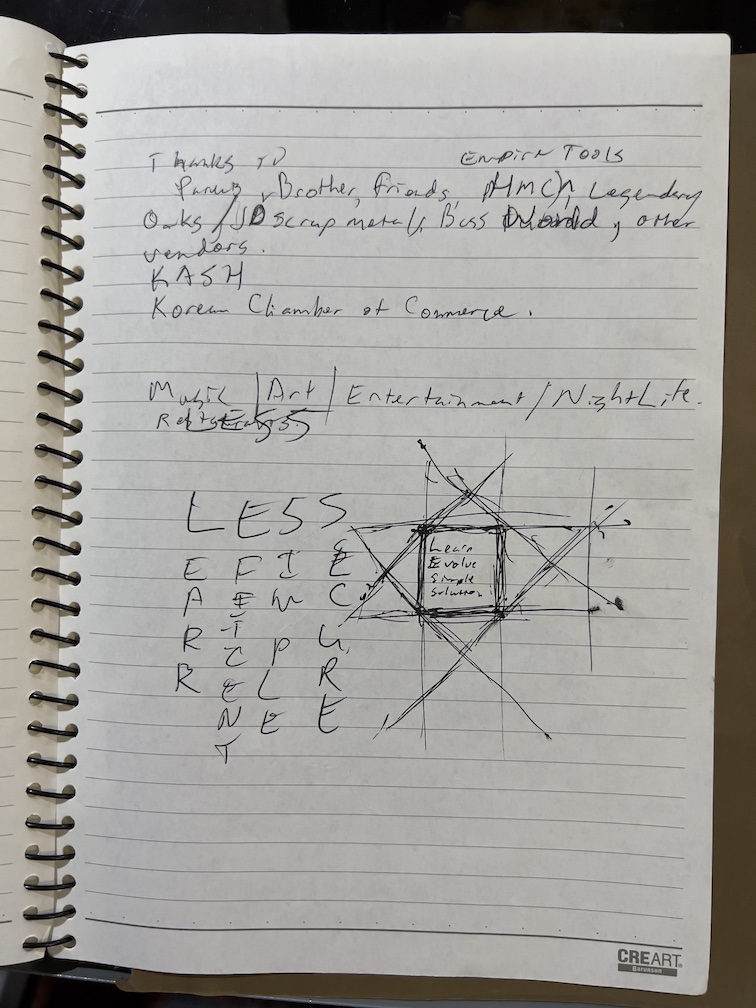 Thanks to Empire Tools
Brother, Friends, HMCA, Legendary
Oaks, JD scrap metal, Boss & other
vendors.
KASH
Korean Chamber of Commerce.
Music | Art | Entertainment / NightLife.
LESS
LESS
E F I E
A F M C
R I P U
R C L R
E
N E E
T
Learn
Evolve
Simple
Solution
CREART
Baronson